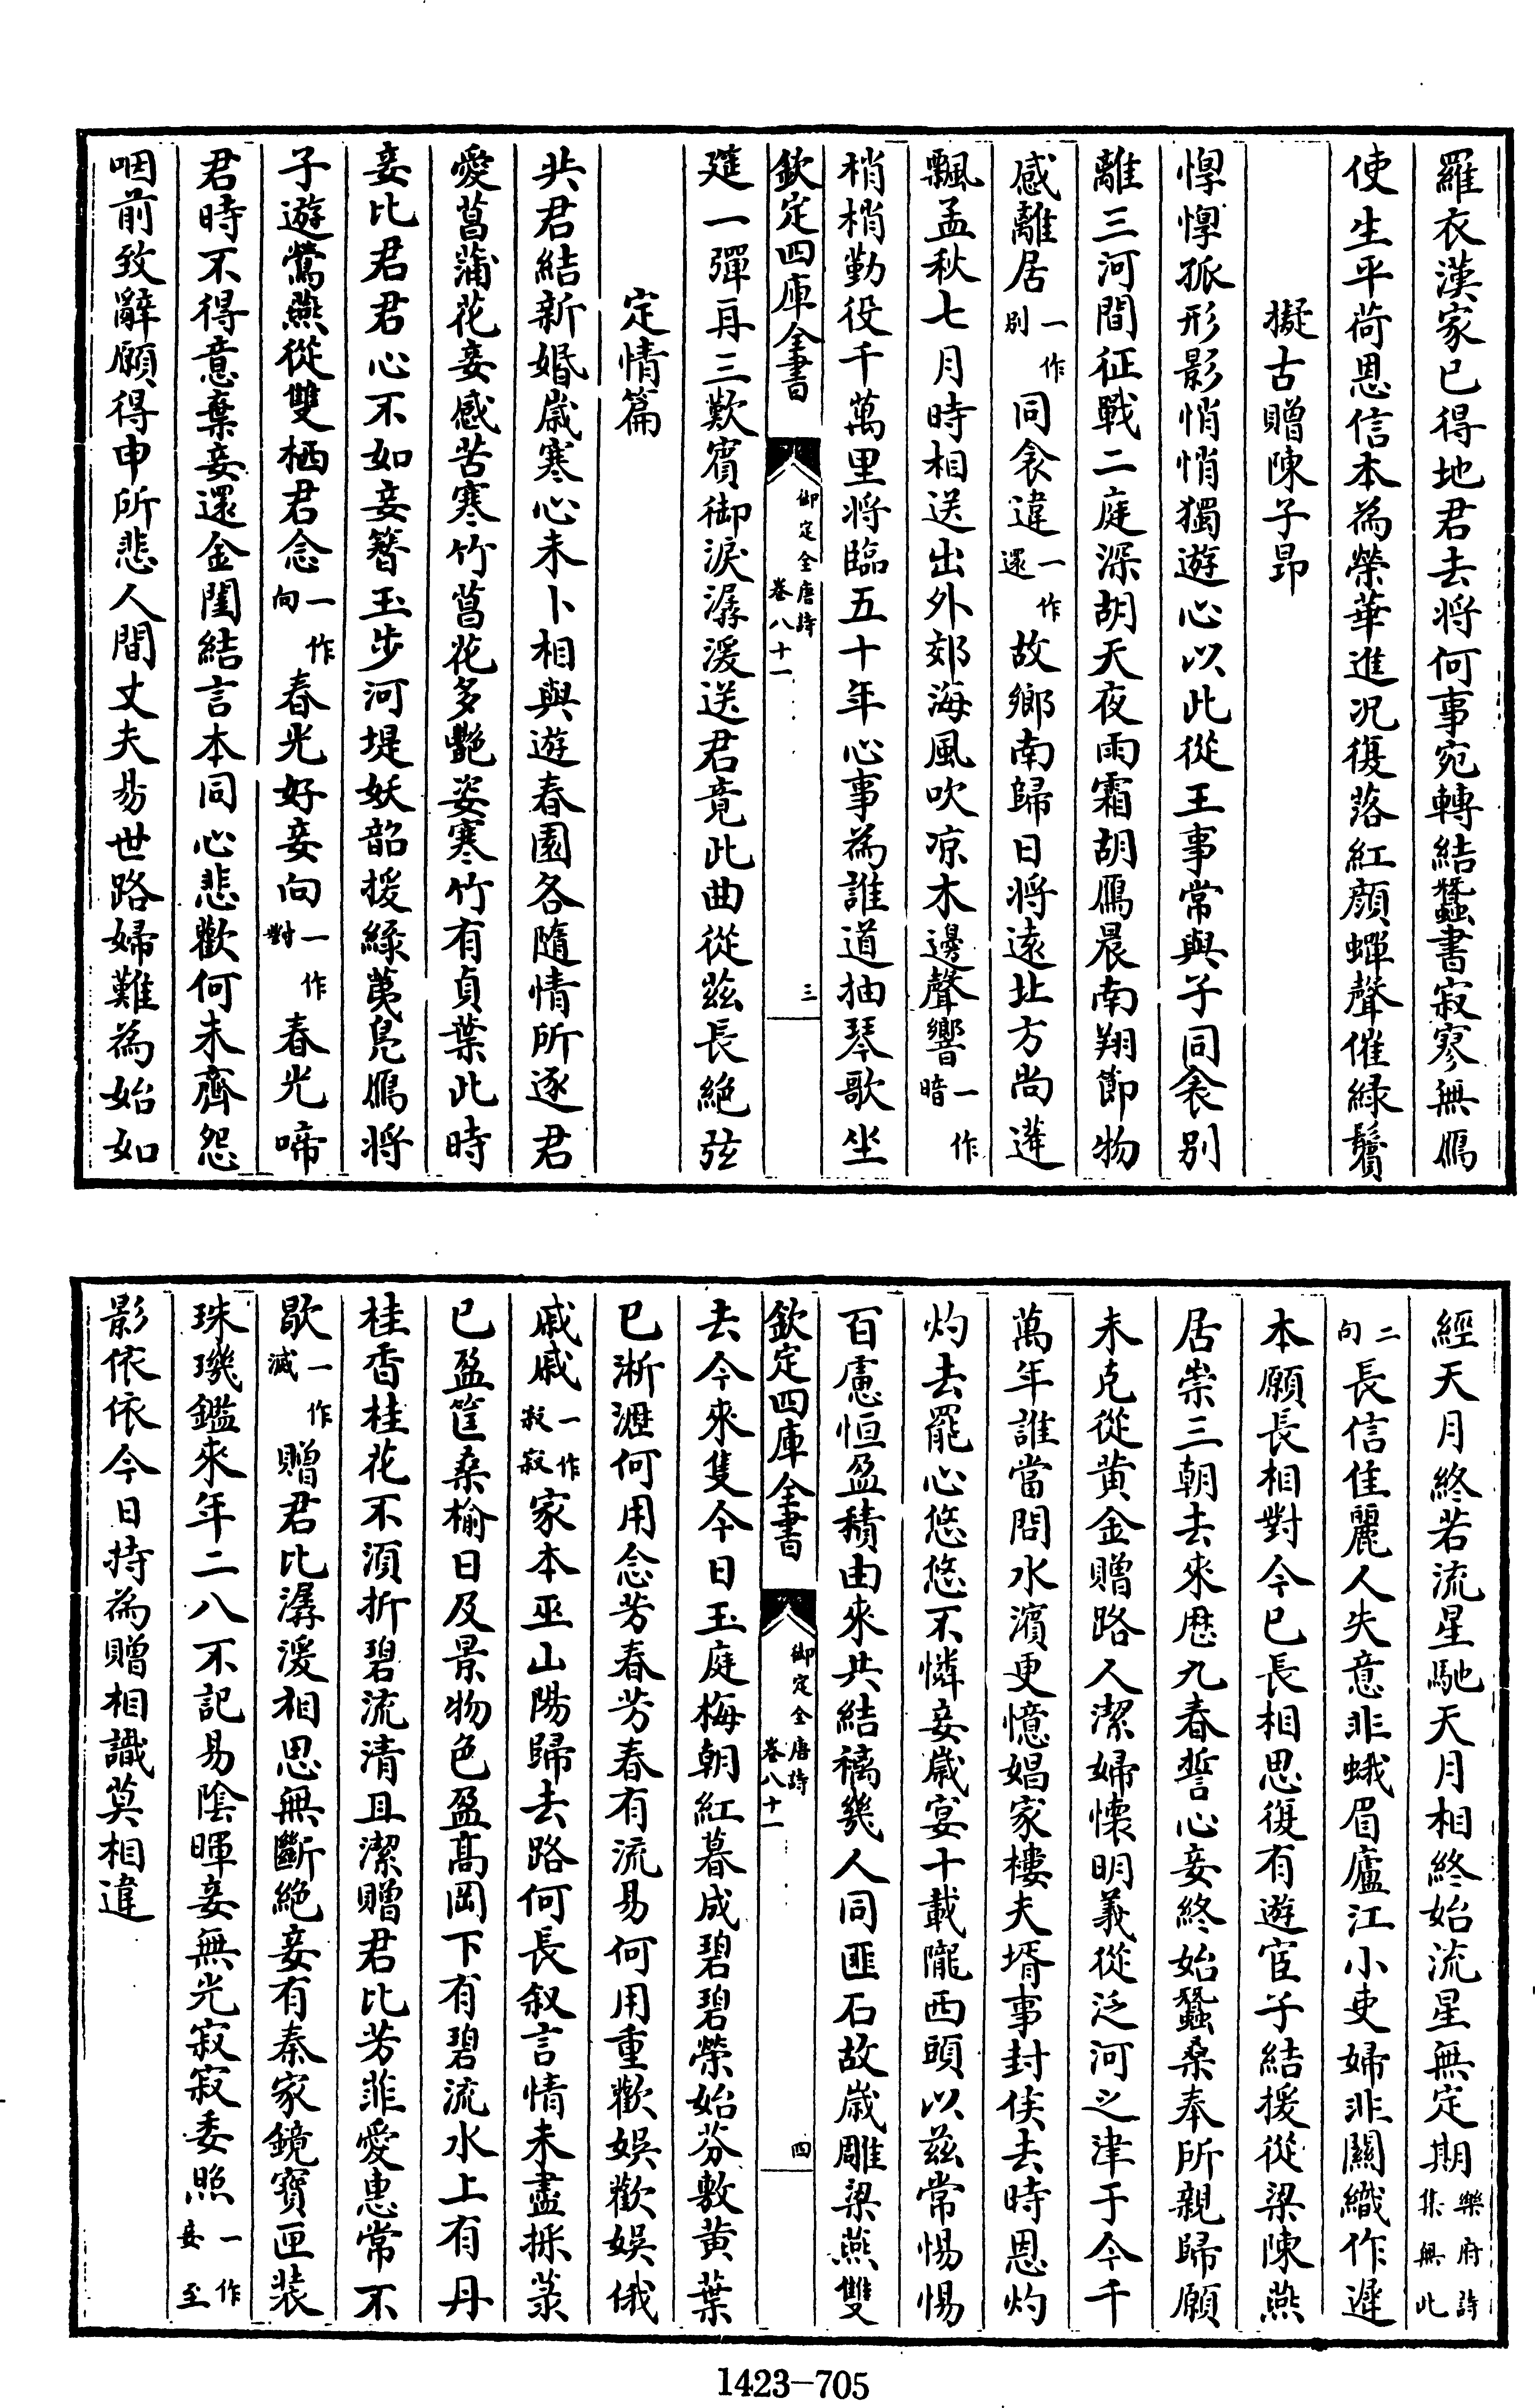 羅衣漢家已得地君去将何事宛轉結蠶書寂寥無鴈
使生平荷恩信本為榮華進况復落紅顔蟬聲催緑鬢
擬古贈陳子昂
惸惸孤形影悄悄獨遊心以此從王事常與子同衾别
離三河間征戰二庭深胡天夜雨霜胡鴈晨南翔節物
感離居一作别同衾違一作還故鄉南歸日将遠北方尚蓬
飄孟秋七月時相送出外郊海風吹凉木邊聲響一作暗
梢梢勤役千萬里将臨五十年心事為誰道抽琴歌坐
欽定四庫全書 御定全唐詩卷八十一 三
筵一彈再三歎賓御淚潺湲送君竟此曲從茲長絶弦
定情篇
共君結新婚歲寒心未卜相與遊春園各隨情所逐君
愛菖蒲花妾感苦寒竹菖花多艶姿寒竹有貞葉此時
妾比君君心不如妾簪玉步河堤妖韶援緑荑鳬鴈将
子遊鶯燕從雙栖君念一作向春光好妾向一作對春光啼
君時不得意棄妾還金閨結言本同心悲歡何未齊怨
咽前致辭願得申所悲人間丈夫易世路婦難為始如
經天月終若流星馳天月相終始流星無定期樂府詩集無此
二句長信佳麗人失意非蛾眉廬江小吏婦非關織作遲
本願長相對今已長相思復有遊宦子結援從梁陳燕
居崇三朝去來歴九春誓心妾終始蠶桑奉所親歸願
未克從黄金贈路人潔婦懐明義從泛河之津于今千
萬年誰當問水濱更憶娼家樓夫壻事封侯去時恩灼
灼去罷心悠悠不憐妾歲宴十載隴西頭以茲常惕惕
百慮恒盈積由來共結褵幾人同匪石故歲雕梁燕雙
欽定四庫全書 御定全唐詩卷八十一 四
去今來隻今日玉庭梅朝紅暮成碧碧榮始芬敷黄葉
已淅瀝何用念芳春芳春有流易何用重歡娯歡娯俄
戚戚一作寂寂家本巫山陽歸去路何長叙言情未盡採菉
已盈筐桑榆日及景物色盈高岡下有碧流水上有丹
桂香桂花不須折碧流清且潔贈君比芳菲愛惠常不
歇一作滅贈君比潺湲相思無斷絶妾有秦家鏡寶匣装
珠璣鑑來年二八不記易陰暉妾無光寂寂委照一作妾至
影依依今日持為贈相識莫相違
1423-705